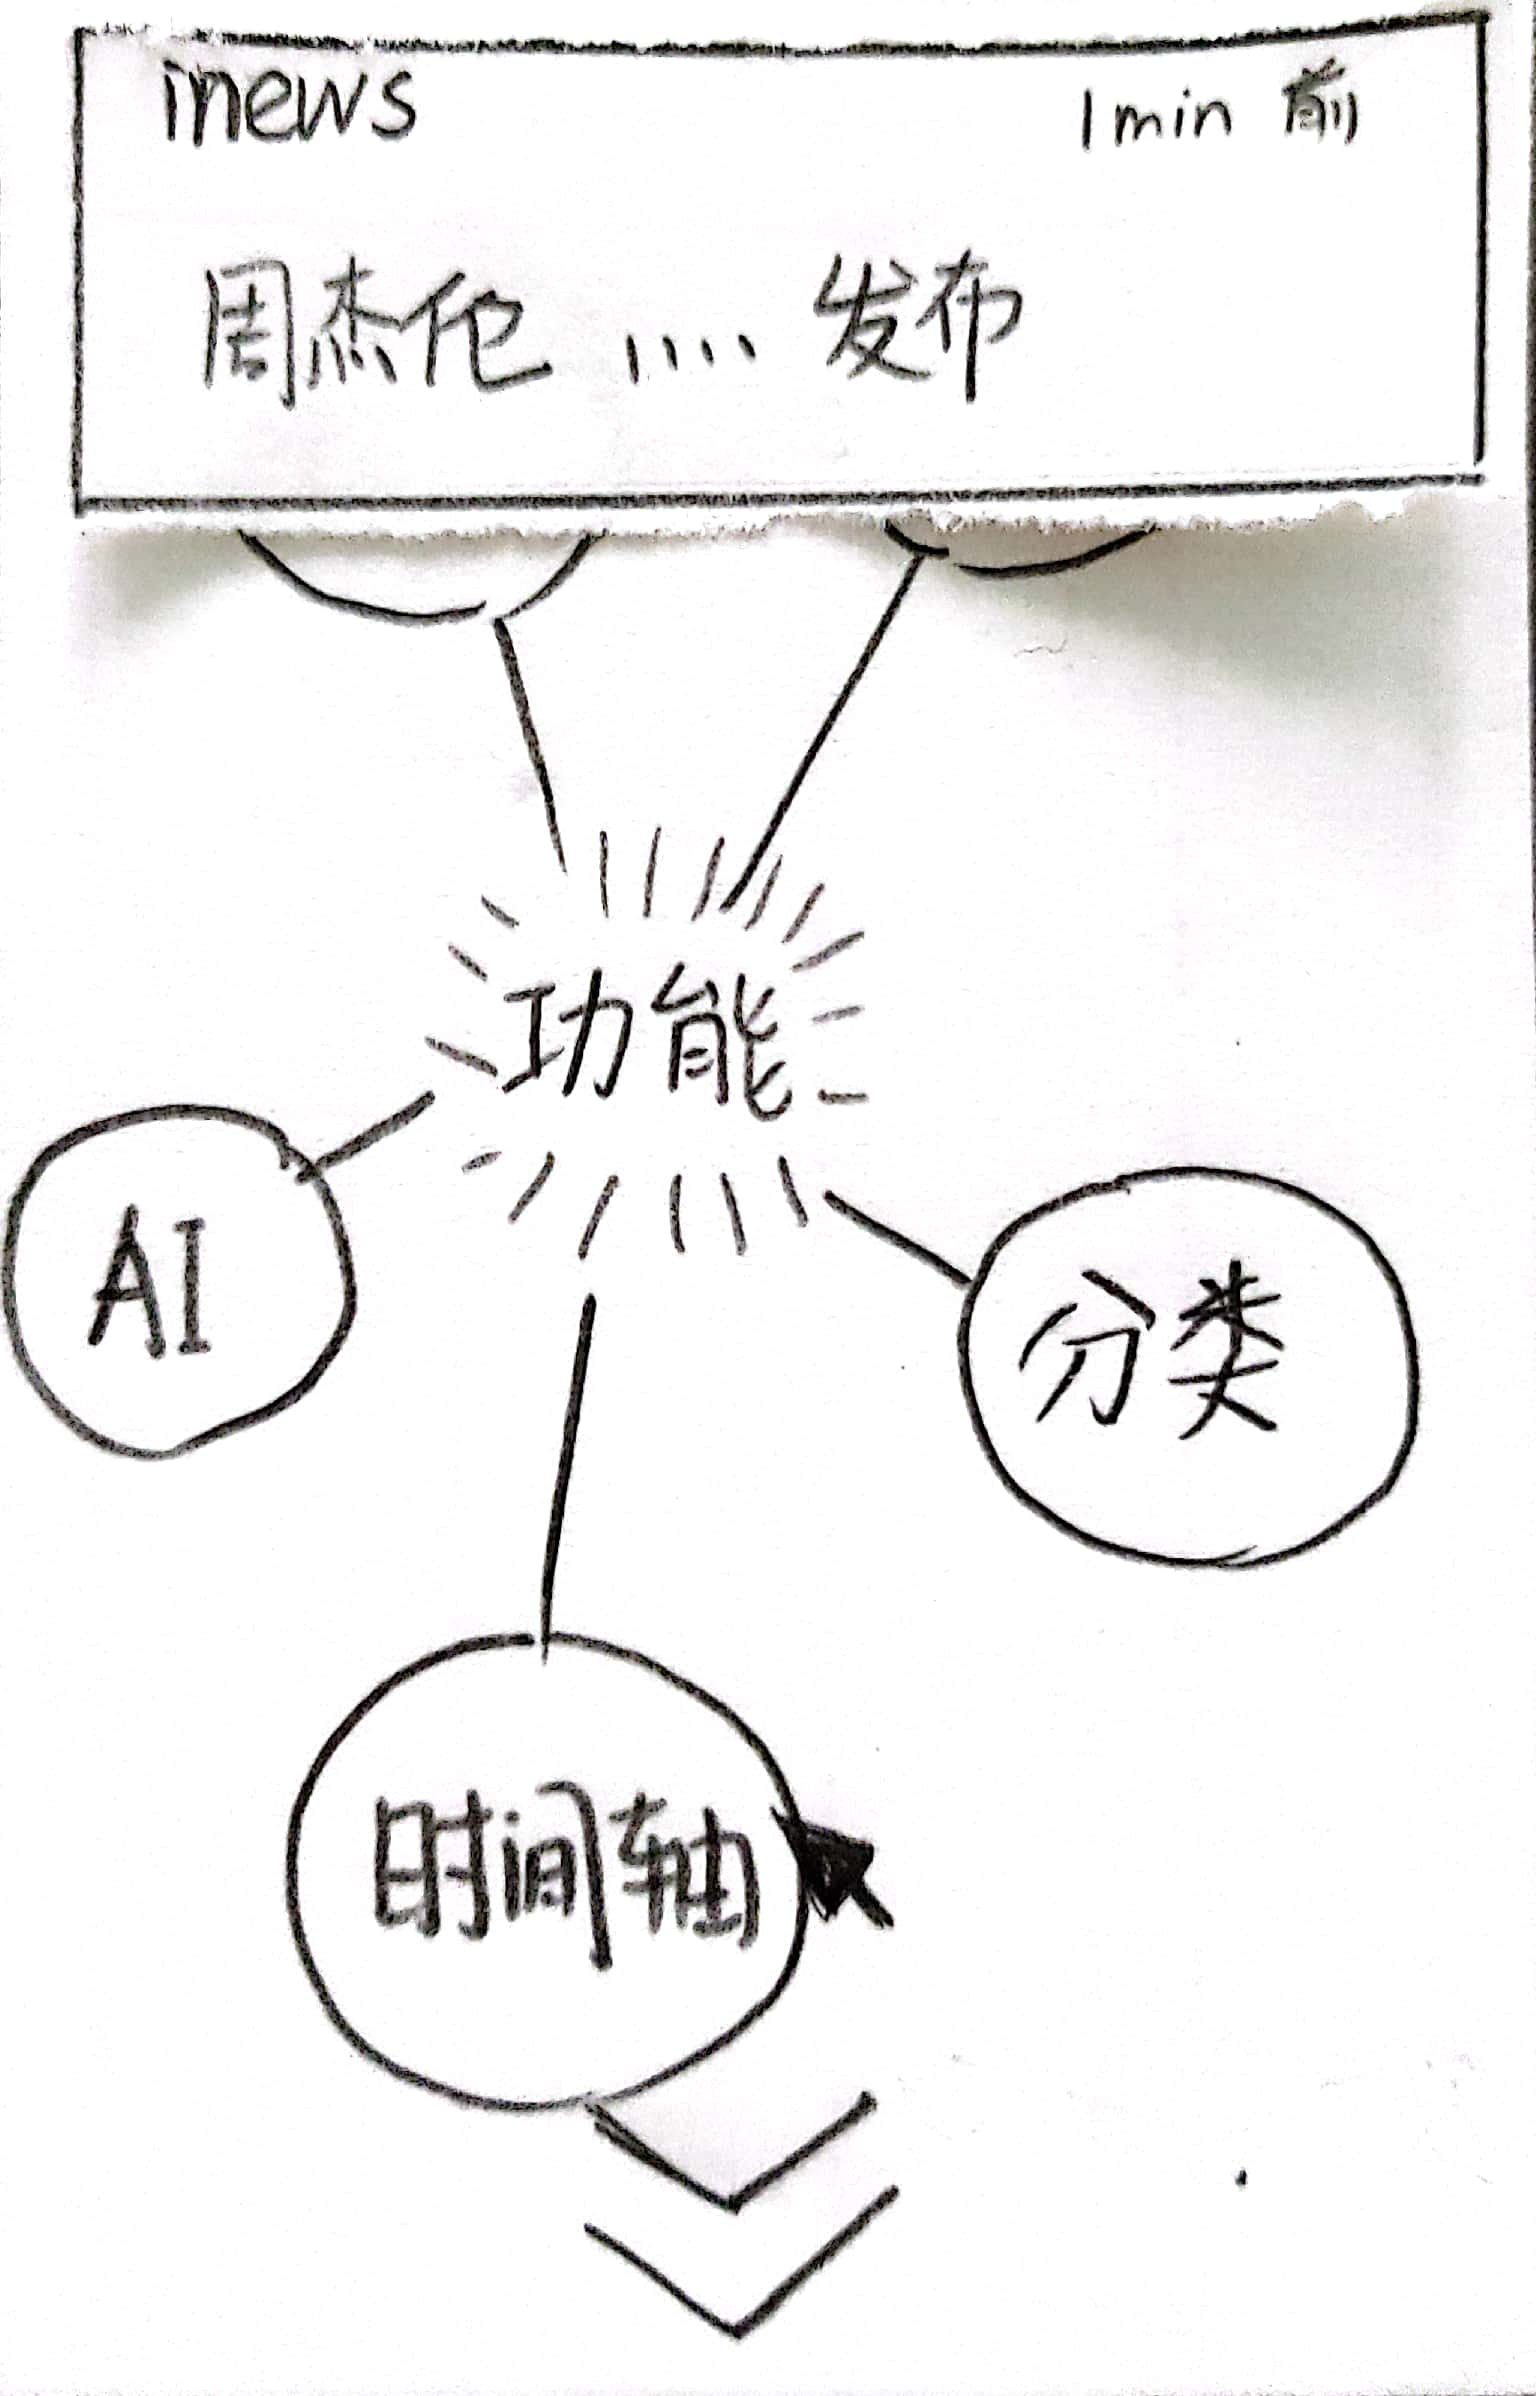 inews
1min 前
周杰伦 .... 发布
功能
AI
分类
时间轴